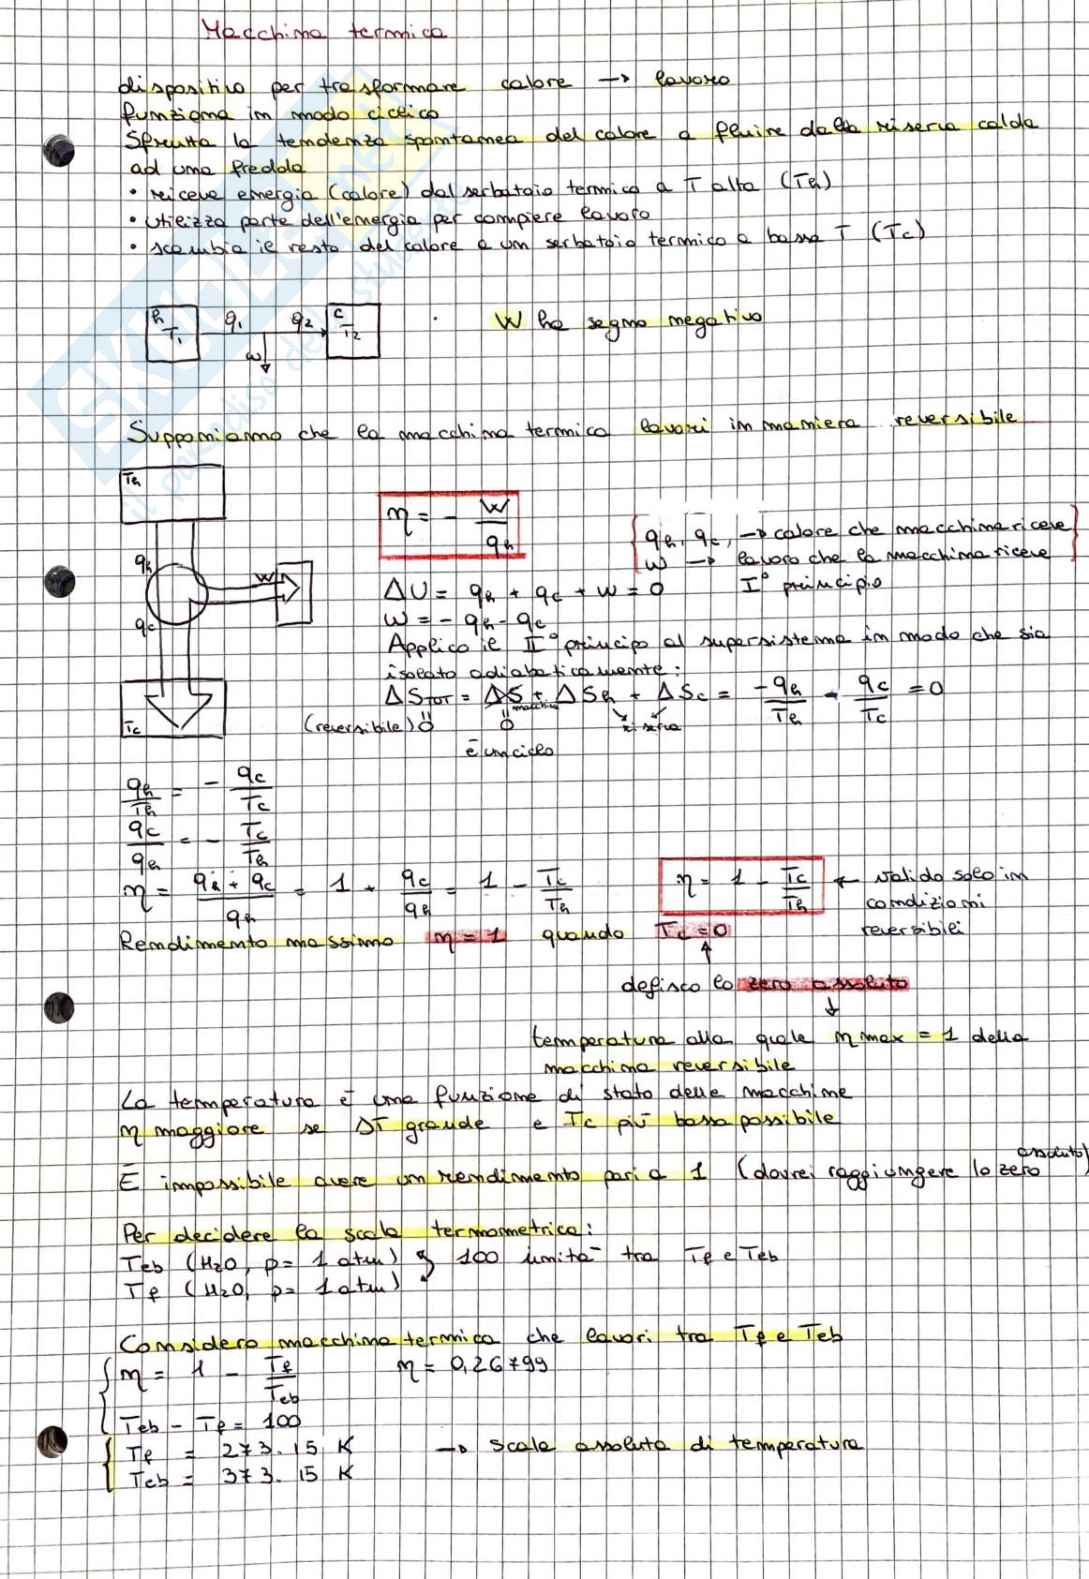 Macchina termica
dispositivo per trasformare calore → lavoro
funziona in modo ciclico
Sfrutta la tendenza spontanea del calore a fluire dalla riserva calda
ad una fredda
• riceve energia (calore) dal serbatoio termico a T alta (Th)
• utilizza parte dell'energia per compiere lavoro
• scambia il resto del calore a un serbatoio termico a bassa T (Tc)
h T1 q1 q2 c T2
w
W ha segno negativo
Supponiamo che la macchina termica lavori in maniera reversibile
Th
qh
W
qc
Tc
η = - W/qh
qh, qc, → calore che macchina riceve
w → lavoro che la macchina riceve
ΔU = qh + qc + w = 0 I° principio
w = - qh - qc
Applico il II° principo al supersistema in modo che sia
isolato adiabaticamente:
ΔSTOT = ΔS macchina + ΔSh + ΔSc = -qh/Th - qc/Tc = 0
(reversibile) 0 0 riserva
è un ciclo
qh/Th = - qc/Tc
qc/qh = - Tc/Th
η = qh + qc/qh = 1 + qc/qh = 1 - Tc/Th
η = 1 - Tc/Th ← valido solo in
condizioni
reversibili
Rendimento massimo η = 1 quando Tc = 0
↑
defisco lo zero assoluto
↓
temperatura alla quale η max = 1 della
macchina reversibile
La temperatura è una funzione di stato delle macchine
η maggiore se ΔT grande e Tc più bassa possibile
È impossibile avere un rendimento pari a 1 (dovrei raggiungere lo zero assoluto)
Per decidere la scala termometrica:
Teb (H2O, p = 1 atm) } 100 unità tra Tf e Teb
Tf (H2O, p = 1 atm)
Considero macchina termica che lavori tra Tf e Teb
η = 1 - Tf/Teb η = 0,26799
Teb - Tf = 100
Tf = 273.15 K → scala assoluta di temperatura
Teb = 373.15 K